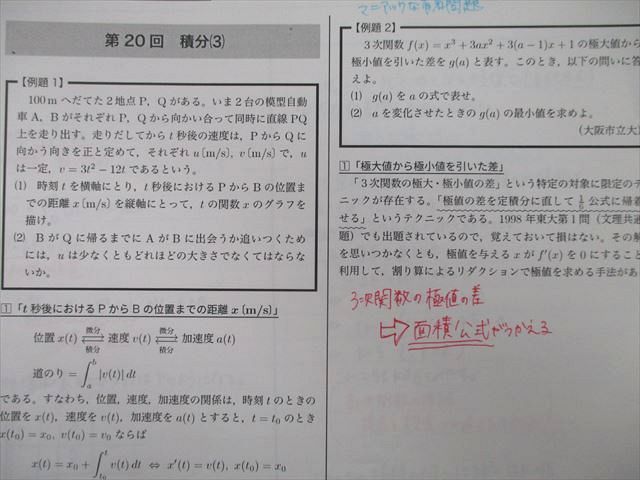 第20回 積分(3)
【例題1】
100mへだてた2地点P，Qがある。いま2台の模型自動
車A，BがそれぞれP，Qから向かい合って同時に直線PQ
上を走り出す。走りだしてからt秒後の速度は，PからQに
向かう向きを正と定めて，それぞれu〔m/s〕，v〔m/s〕で，u
は一定，v = 3t² − 12tであるという。
(1) 時刻tを横軸にとり，t秒後におけるPからBの位置ま
での距離x〔m/s〕を縦軸にとって，tの関数xのグラフを
描け。
(2) BがQに帰るまでにAがBに出会うか追いつくため
には，uは少なくともどれほどの大きさでなくてはならな
いか。
1「t秒後におけるPからBの位置までの距離x〔m/s〕」
位置x(t) ⇄ 速度v(t) ⇄ 加速度a(t)
微分 微分
積分 積分
道のり = ∫_a^b |v(t)| dt
である。すなわち，位置，速度，加速度の関係は，時刻tのときの
位置をx(t)，速度をv(t)，加速度をa(t)とすると，t = t₀のとき
x(t₀) = x₀, v(t₀) = v₀ ならば
x(t) = x₀ + ∫_{t₀}^t v(t) dt ⇔ x′(t) = v(t), x(t₀) = x₀
マニアックな有名問題
【例題2】
3次関数f(x) = x³ + 3ax² + 3(a − 1)x + 1の極大値から
極小値を引いた差をg(a)と表す。このとき，以下の問いに答
えよ。
(1) g(a)をaの式で表せ。
(2) aを変化させたときのg(a)の最小値を求めよ。
(大阪市立大
1「極大値から極小値を引いた差」
「3次関数の極大・極小値の差」という特定の対象に限定のテ
ニックが存在する。「極値の差を定積分に直して1/6公式に帰着
せる」というテクニックである。1998年東大第1問（文理共通
題）でも出題されているので，覚えておいて損はない。その解
を思いつかなくとも，極値を与えるxがf′(x)を0にすること
利用して，割り算によるリダクションで極値を求める手法があ
3次関数の極値の差
⇨ 面積公式がつかえる